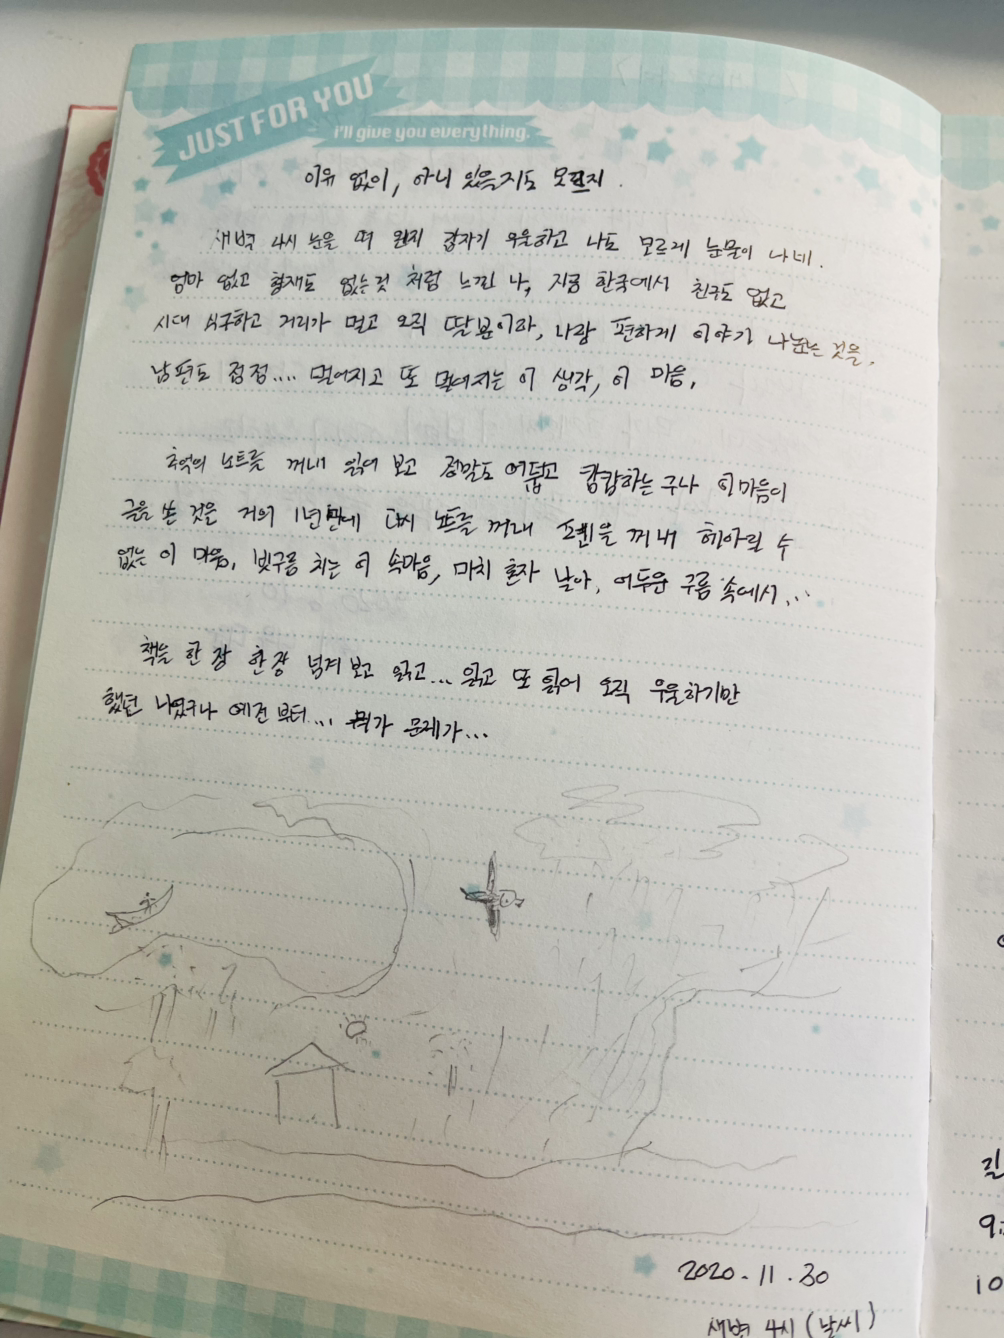 JUST FOR YOU
i'll give you everything.
이유 없이, 아니 있을지도 모르지.
새벽 4시 눈을 떠 왠지 갑자기 우울하고 나도 모르게 눈물이 나네.
엄마 없고 형재도 없는것 처럼 느낀 나, 지금 한국에서 친구도 없고
시대 식구하고 거리가 멀고 오직 딸뿐이라, 나랑 편하게 이야기 나눈는 것을,
남편도 점점.... 멀어지고 또 멀어지는 이 생각, 이 마음,
추억의 노트를 꺼내 읽어 보고 정말도 어둡고 캄캄하는 구나 이마음이
글을 쓴 것은 거의 1년만에 다시 노트를 꺼내 펜을 꺼내 헤아릴 수
없는 이 마음, 빗구름 치는 이 속마음, 마치 혼자 날아, 어두운 구름 속에서...
책을 한 장 한 장 넘겨 보고 읽고... 읽고 또 읽어 오직 우울하기만
했던 나였구나 예전 부터... 뭐가 문제가...
2020.11.30
새벽 4시 (날씨)
길
9:
10